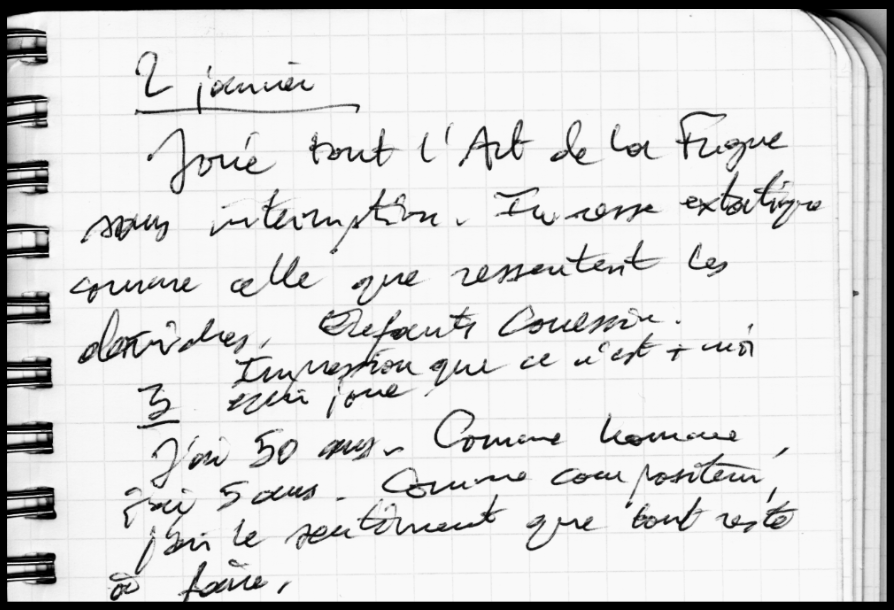 2 janvier
Joué tout l'Art de la Fugue
sans interruption. Ivresse extatique
comme celle que ressentent les
derviches.
Impression que ce n'est + moi
3 qui joue
J'ai 50 ans. Comme homme,
j'ai 5 ans. Comme compositeur,
j'ai le sentiment que tout reste
à faire.